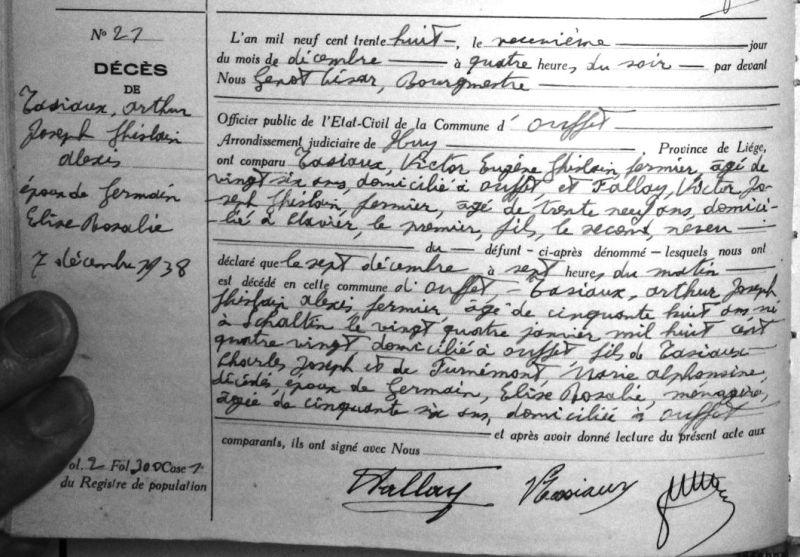 N° 27
DÉCÈS
DE
Tasiaux, Arthur
Joseph Ghislain
Alexis
époux de Germain
Elise Rosalie
7 décembre 1938
Vol. 2 Fol 200 Case 1
du Registre de population
L'an mil neuf cent trente huit, le neuvième jour
du mois de décembre à quatre heures du soir par devant
Nous Genot César, Bourgmestre
Officier public de l'Etat-Civil de la Commune d' Ouffet
Arrondissement judiciaire de Huy, Province de Liége,
ont comparu Tasiaux, Victor Eugène Ghislain fermier, âgé de
vingt six ans, domicilié à Ouffet et Fallay, Victor Jo-
seph Ghislain fermier, âgé de trente neuf ans, domici-
lié à Clavier, le premier, fils, le second, neveu
du défunt - ci-après dénommé - lesquels nous ont
déclaré que le sept décembre à sept heures du matin
est décédé en cette commune d'Ouffet, Tasiaux, Arthur Joseph
Ghislain Alexis fermier, âgé de cinquante huit ans né
à Schaltin le vingt quatre janvier mil huit cent
quatre vingt domicilié à Ouffet fils de Tasiaux
Charles Joseph et de Furnémont, Marie Alphonsine,
décédés, époux de Germain, Elise Rosalie, ménagère,
âgée de cinquante six ans, domiciliée à Ouffet
et après avoir donné lecture du présent acte aux
comparants, ils ont signé avec Nous
VFallay VTasiaux